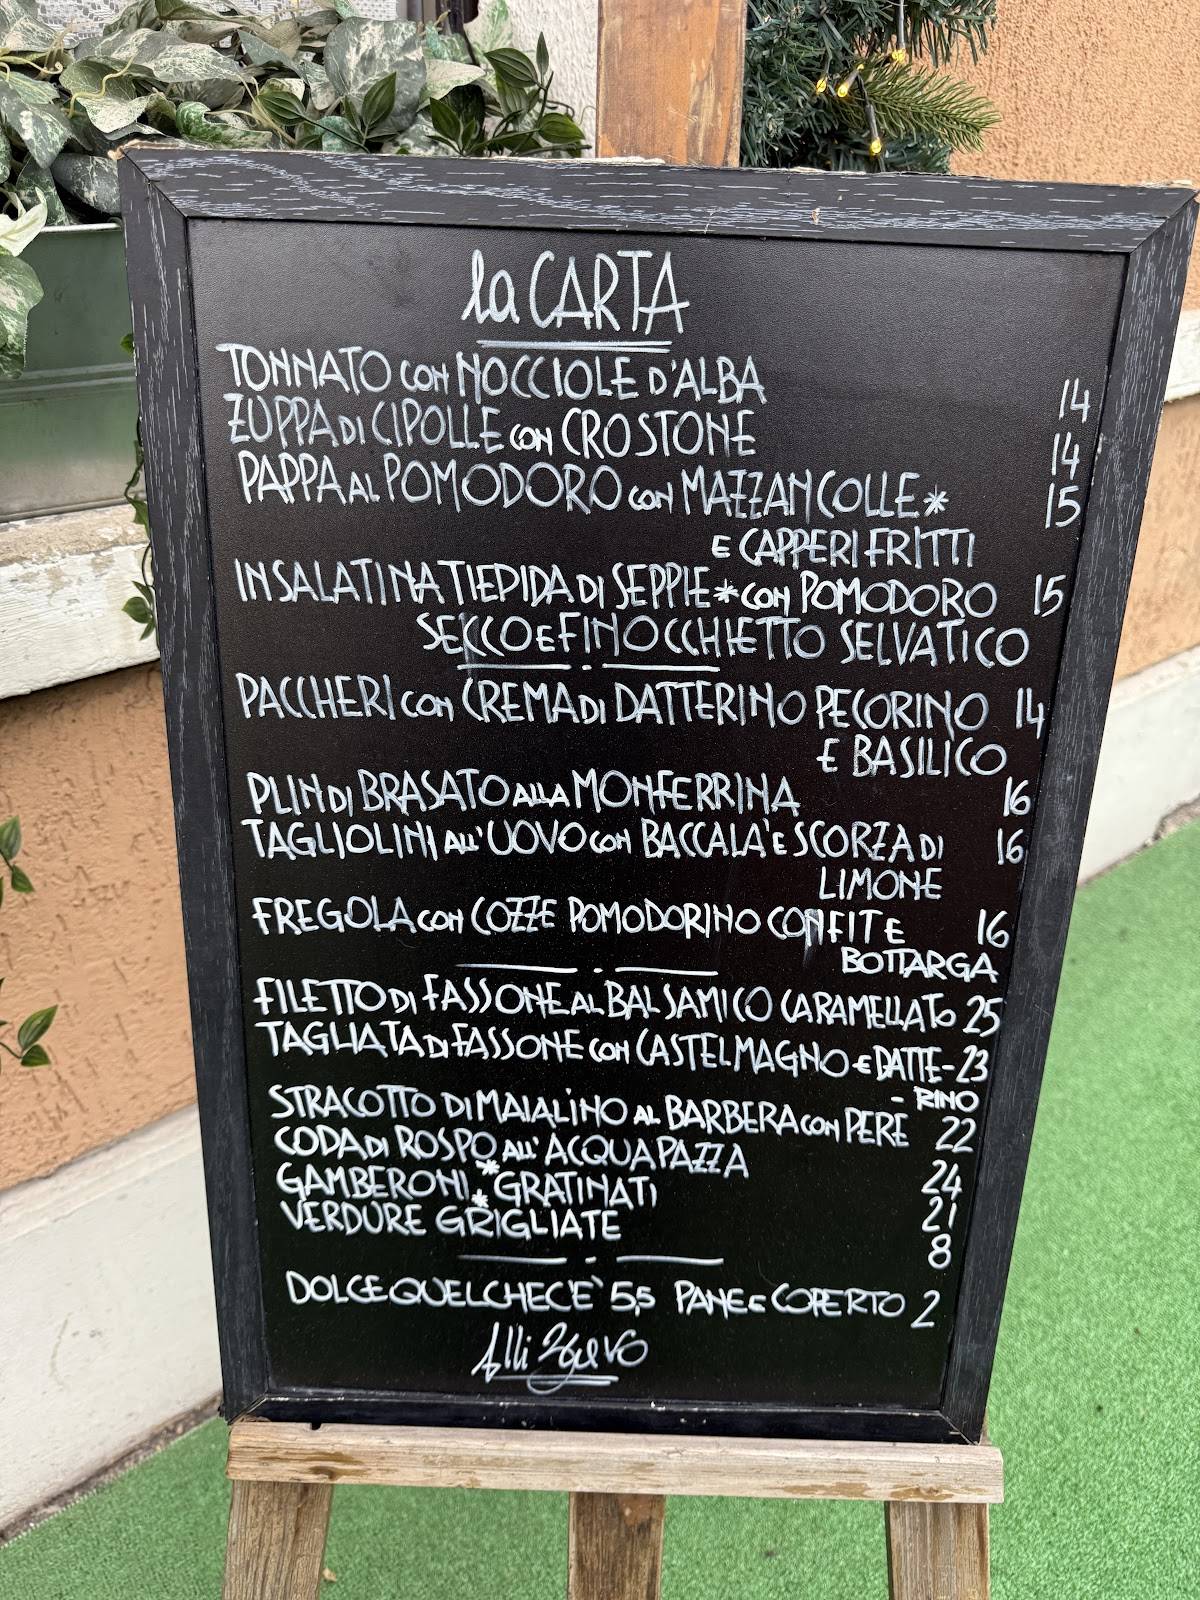 la CARTA
TONNATO con NOCCIOLE D'ALBA 14
ZUPPA DI CIPOLLE con CROSTONE 14
PAPPA AL POMODORO con MAZZANCOLLE* 15
E CAPPERI FRITTI
INSALATINA TIEPIDA DI SEPPIE* con POMODORO 15
SECCO E FINOCCHIETTO SELVATICO
PACCHERI con CREMA DI DATTERINO PECORINO 14
E BASILICO
PLIN DI BRASATO ALLA MONFERRINA 16
TAGLIOLINI ALL'UOVO con BACCALA' E SCORZA DI 16
LIMONE
FREGOLA con COZZE POMODORINO CONFIT E 16
BOTTARGA
FILETTO DI FASSONE AL BALSAMICO CARAMELLATO 25
TAGLIATA DI FASSONE con CASTELMAGNO E DATTE- 23
- RINO
STRACOTTO DI MAIALINO AL BARBERA con PERE 22
CODA DI ROSPO ALL'ACQUA PAZZA 24
GAMBERONI* GRATINATI 21
VERDURE* GRIGLIATE 8
DOLCE QUEL CHE C'E' 5,5 PANE E COPERTO 2